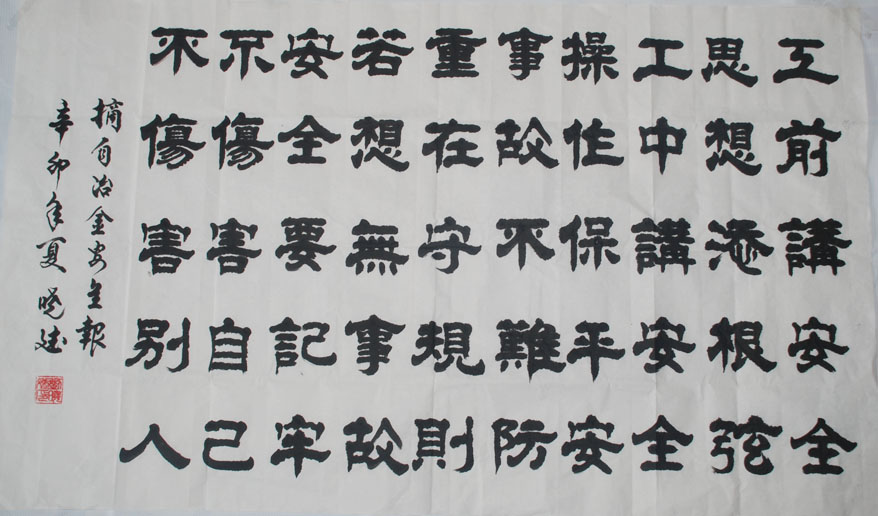 工前講安全
思想添根弦
工中講安全
操作保平安
事故不難防
重在守規則
若想無事故
安全要記牢
不傷害自己
不傷害別人
摘自冶金安全報
辛卯年夏曉